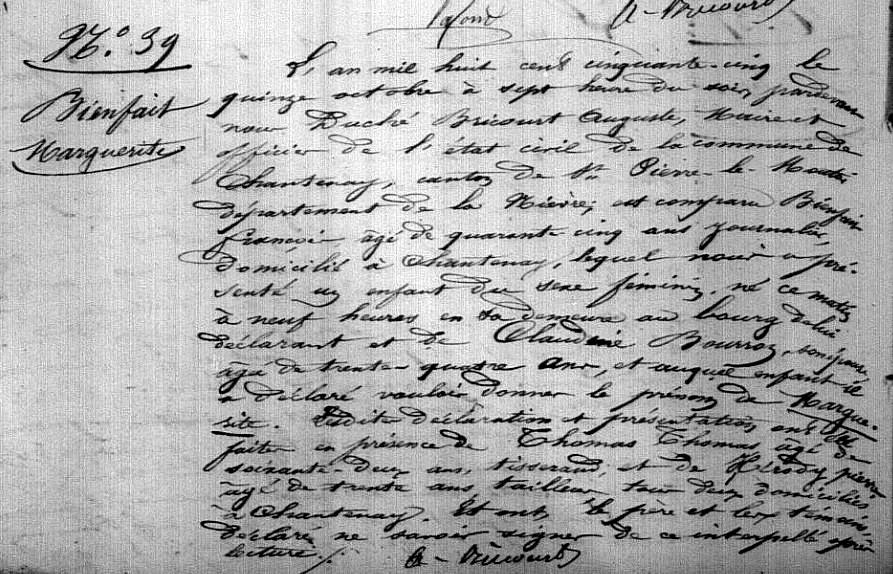 Lafond
A - Bricourt
N.° 39
Bienfait
Marguerite
L'an mil huit cent cinquante-cinq le
quinze octobre à sept heure du soir, pardevant
nous Duché Bricourt Auguste, Maire et
officier de l'état civil de la commune de
Chantenay, canton de St Pierre-le-Moutier
département de la Nièvre; est comparu Bienfait
françois âgé de quarante cinq ans journalier,
domicilié à Chantenay, lequel nous a pré-
senté un enfant du sexe féminin, né ce matin
à neuf heures en sa demeure au bourg de lui
déclarant et de Claudine son épouse,
âgé de trente-quatre ans, et auquel enfant il
a déclaré vouloir donner le prénom de Margue-
rite. Lesdites déclaration et présentation ont été
faites en présence de Thomas Thomas âgé de
soixante-deux ans, tisserand, et de pierre
âgé de trente ans tailleur, tous deux domiciliés
à Chantenay. Et ont le père et les témoins,
déclaré ne savoir signer de ce interpellé après
lecture ./.
A - Bricourt